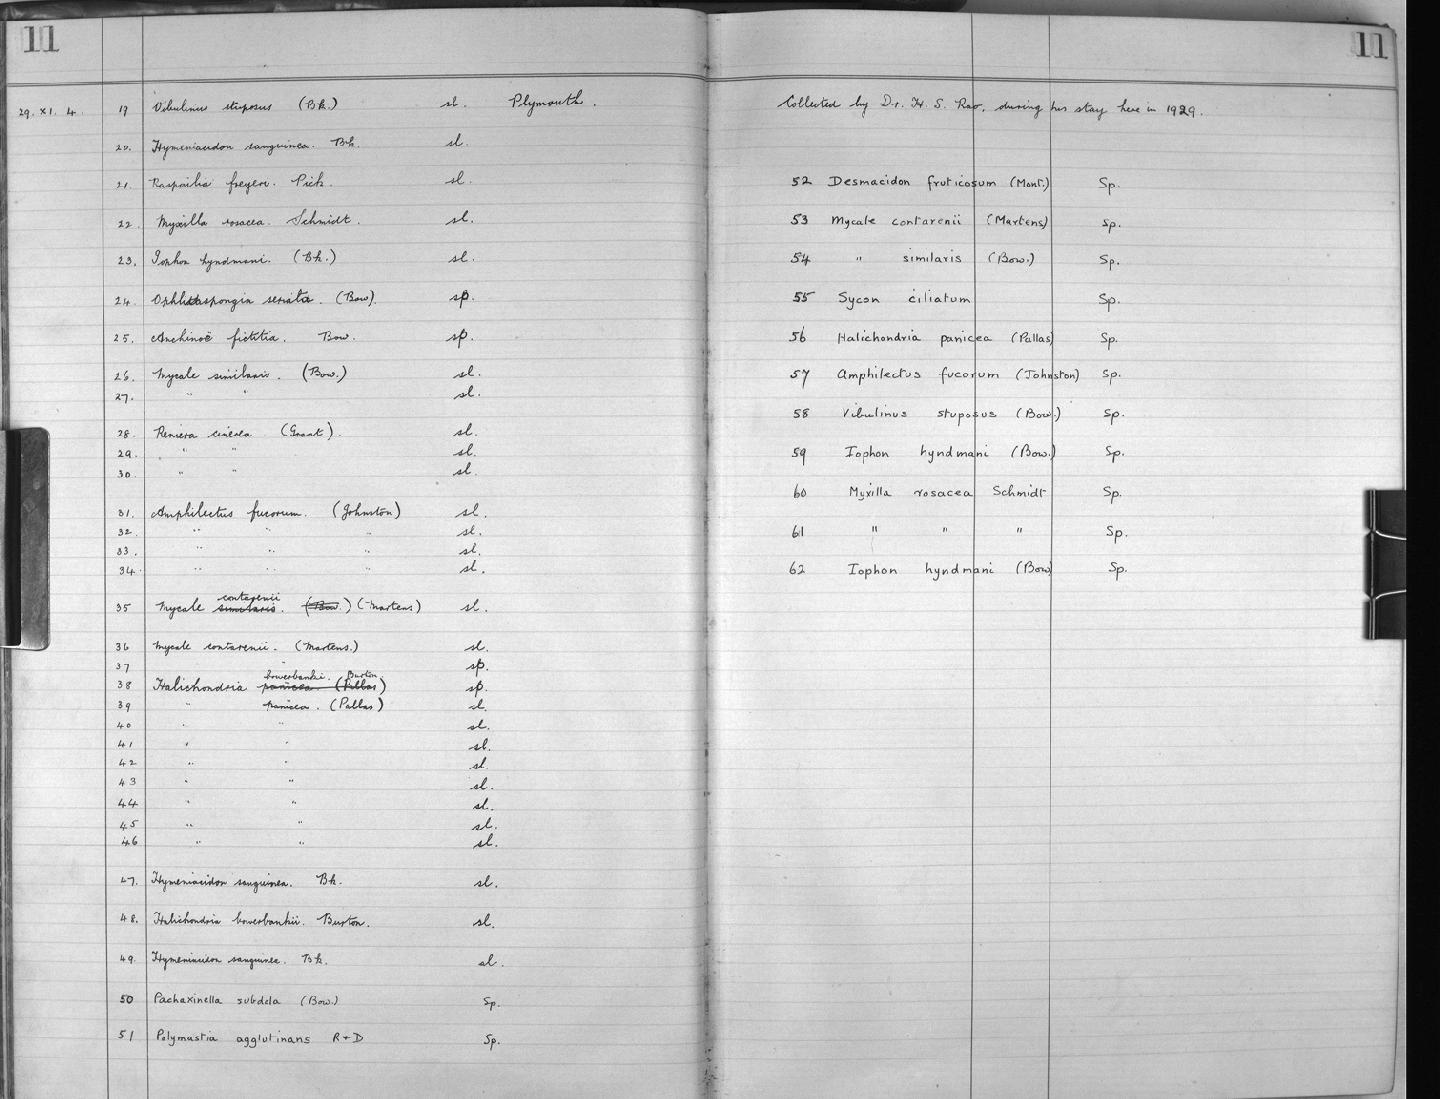 11
11
29. XI. 4. 19 Vibulinus stuposus (Bk.) sl. Plymouth.
20. Hymeniacidon sanguinea. Bk. sl.
21. Raspailia Pick. sl.
22. Myxilla rosacea. Schmidt. sl.
23. Iophon hyndmani. (Bk.) sl.
24. Ophlitaspongia seriata. (Bow). sp.
25. Anchinoë fictitia. Bow. sp.
26. Mycale similaris. (Bow.) sl.
27. " " sl.
28. Reniera cinerea (Grant). sl.
29. " " sl.
30. " " sl.
31. Amphilectus fucorum. (Johnston) sl.
32. " " " sl.
33. " " " sl.
34. " " " sl.
contarenii
35 Mycale similaris. (Bow.) (Martens) sl.
36 Mycale contarenii. (Martens.) sl.
37 " sp.
bowerbankii. Burton.
38 Halichondria panicea (Pallas) sp.
39 " panicea. (Pallas) sl.
40 " " sl.
41 " " sl.
42 " " sl.
43 " " sl.
44 " " sl.
45 " " sl.
46 " " sl.
47. Hymeniacidon sanguinea. Bk. sl.
48. Halichondria bowerbankii. Burton. sl.
49. Hymeniacidon sanguinea. Bk. sl.
50 Pachaxinella subdola (Bow.) Sp.
51 Polymastia agglutinans R+D Sp.
Collected by Dr. H. S. Rao, during his stay here in 1929.
52 Desmacidon fruticosum (Mont.) Sp.
53 Mycale contarenii (Martens) Sp.
54 " similaris (Bow.) Sp.
55 Sycon ciliatum Sp.
56 Halichondria panicea (Pallas) Sp.
57 Amphilectus fucorum (Johnston) Sp.
58 Vibulinus stuposus (Bow.) Sp.
59 Iophon hyndmani (Bow.) Sp.
60 Myxilla rosacea Schmidt Sp.
61 " " " Sp.
62 Iophon hyndmani (Bow) Sp.